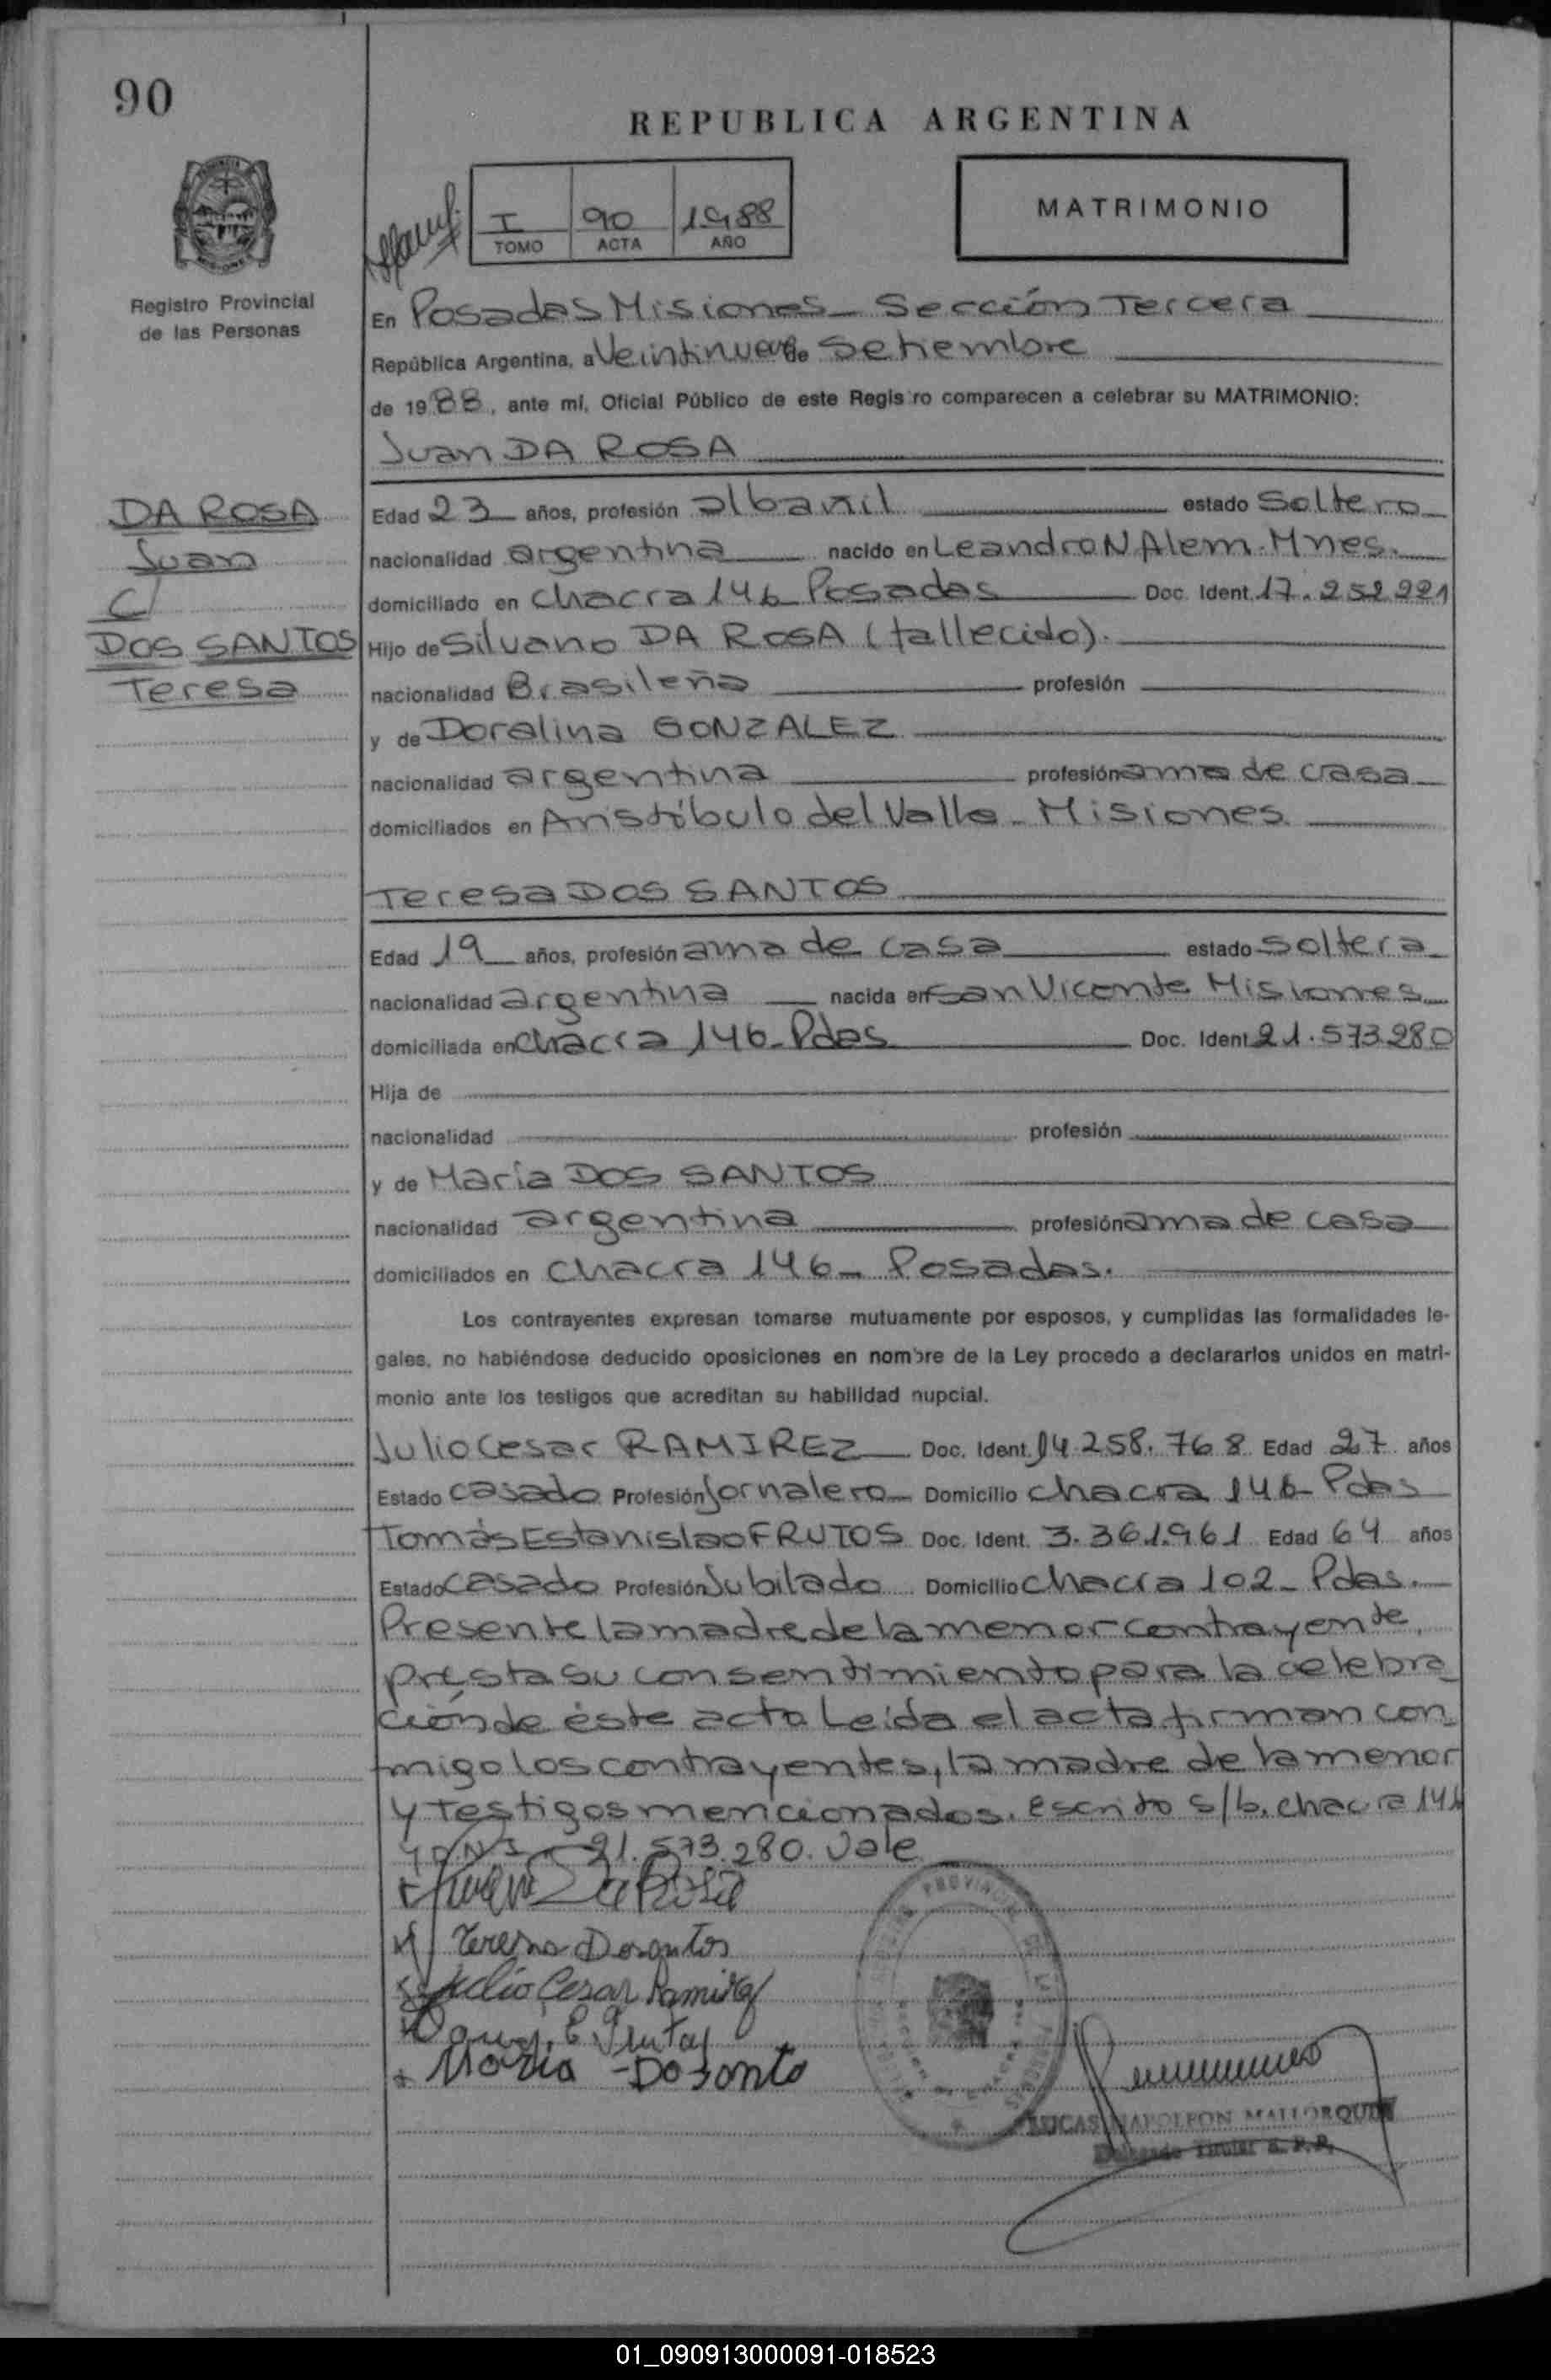 90
REPUBLICA ARGENTINA
I 90 1988
TOMO ACTA AÑO
MATRIMONIO
Registro Provincial
de las Personas
En Posadas Misiones - Sección Tercera
República Argentina, a Veintinueve de Setiembre
de 1988, ante mí, Oficial Público de este Registro comparecen a celebrar su MATRIMONIO:
Juan DA ROSA
DA ROSA
Juan
C/
DOS SANTOS
Teresa
Edad 23 años, profesión albañil estado Soltero
nacionalidad argentina nacido en Leandro N Alem. Mnes.
domiciliado en chacra 146 Posadas Doc. Ident. 17.252.221
Hijo de Silvano DA ROSA (fallecido).
nacionalidad Brasileña profesión
y de Doralina GONZALEZ
nacionalidad argentina profesión ama de casa
domiciliados en Aristóbulo del Valle - Misiones.
Teresa DOS SANTOS
Edad 19 años, profesión ama de casa estado soltera
nacionalidad argentina nacida en San Vicente Misiones
domiciliada en chacra 146 - Pdas Doc. Ident. 21.573.280
Hija de
nacionalidad profesión
y de María DOS SANTOS
nacionalidad argentina profesión ama de casa
domiciliados en chacra 146 - Posadas.
Los contrayentes expresan tomarse mutuamente por esposos, y cumplidas las formalidades le-
gales, no habiéndose deducido oposiciones en nombre de la Ley procedo a declararlos unidos en matri-
monio ante los testigos que acreditan su habilidad nupcial.
Julio Cesar RAMIREZ Doc. Ident. 14.258.768 Edad 27 años
Estado casado Profesión Jornalero Domicilio chacra 146 - Pdas
Tomás Estanislao FRUTOS Doc. Ident. 3.361.961 Edad 64 años
Estado casado Profesión Jubilado Domicilio chacra 102 - Pdas.
Presente la madre de la menor contrayente,
présta su consentimiento para la celebra
ción de éste acto Leída el acta firman con
migo los contrayentes, la madre de la menor
y testigos mencionados. escrito s/b. chacra 146
y DNI 21.573.280. Vale
Juan Da Rosa
Teresa Dosantos
Julio Cesar Ramirez
Maria - Dosonto
LUCAS NAPOLEON MALLORQUIN
Delegado Titular R. P. P.
01_090913000091-018523